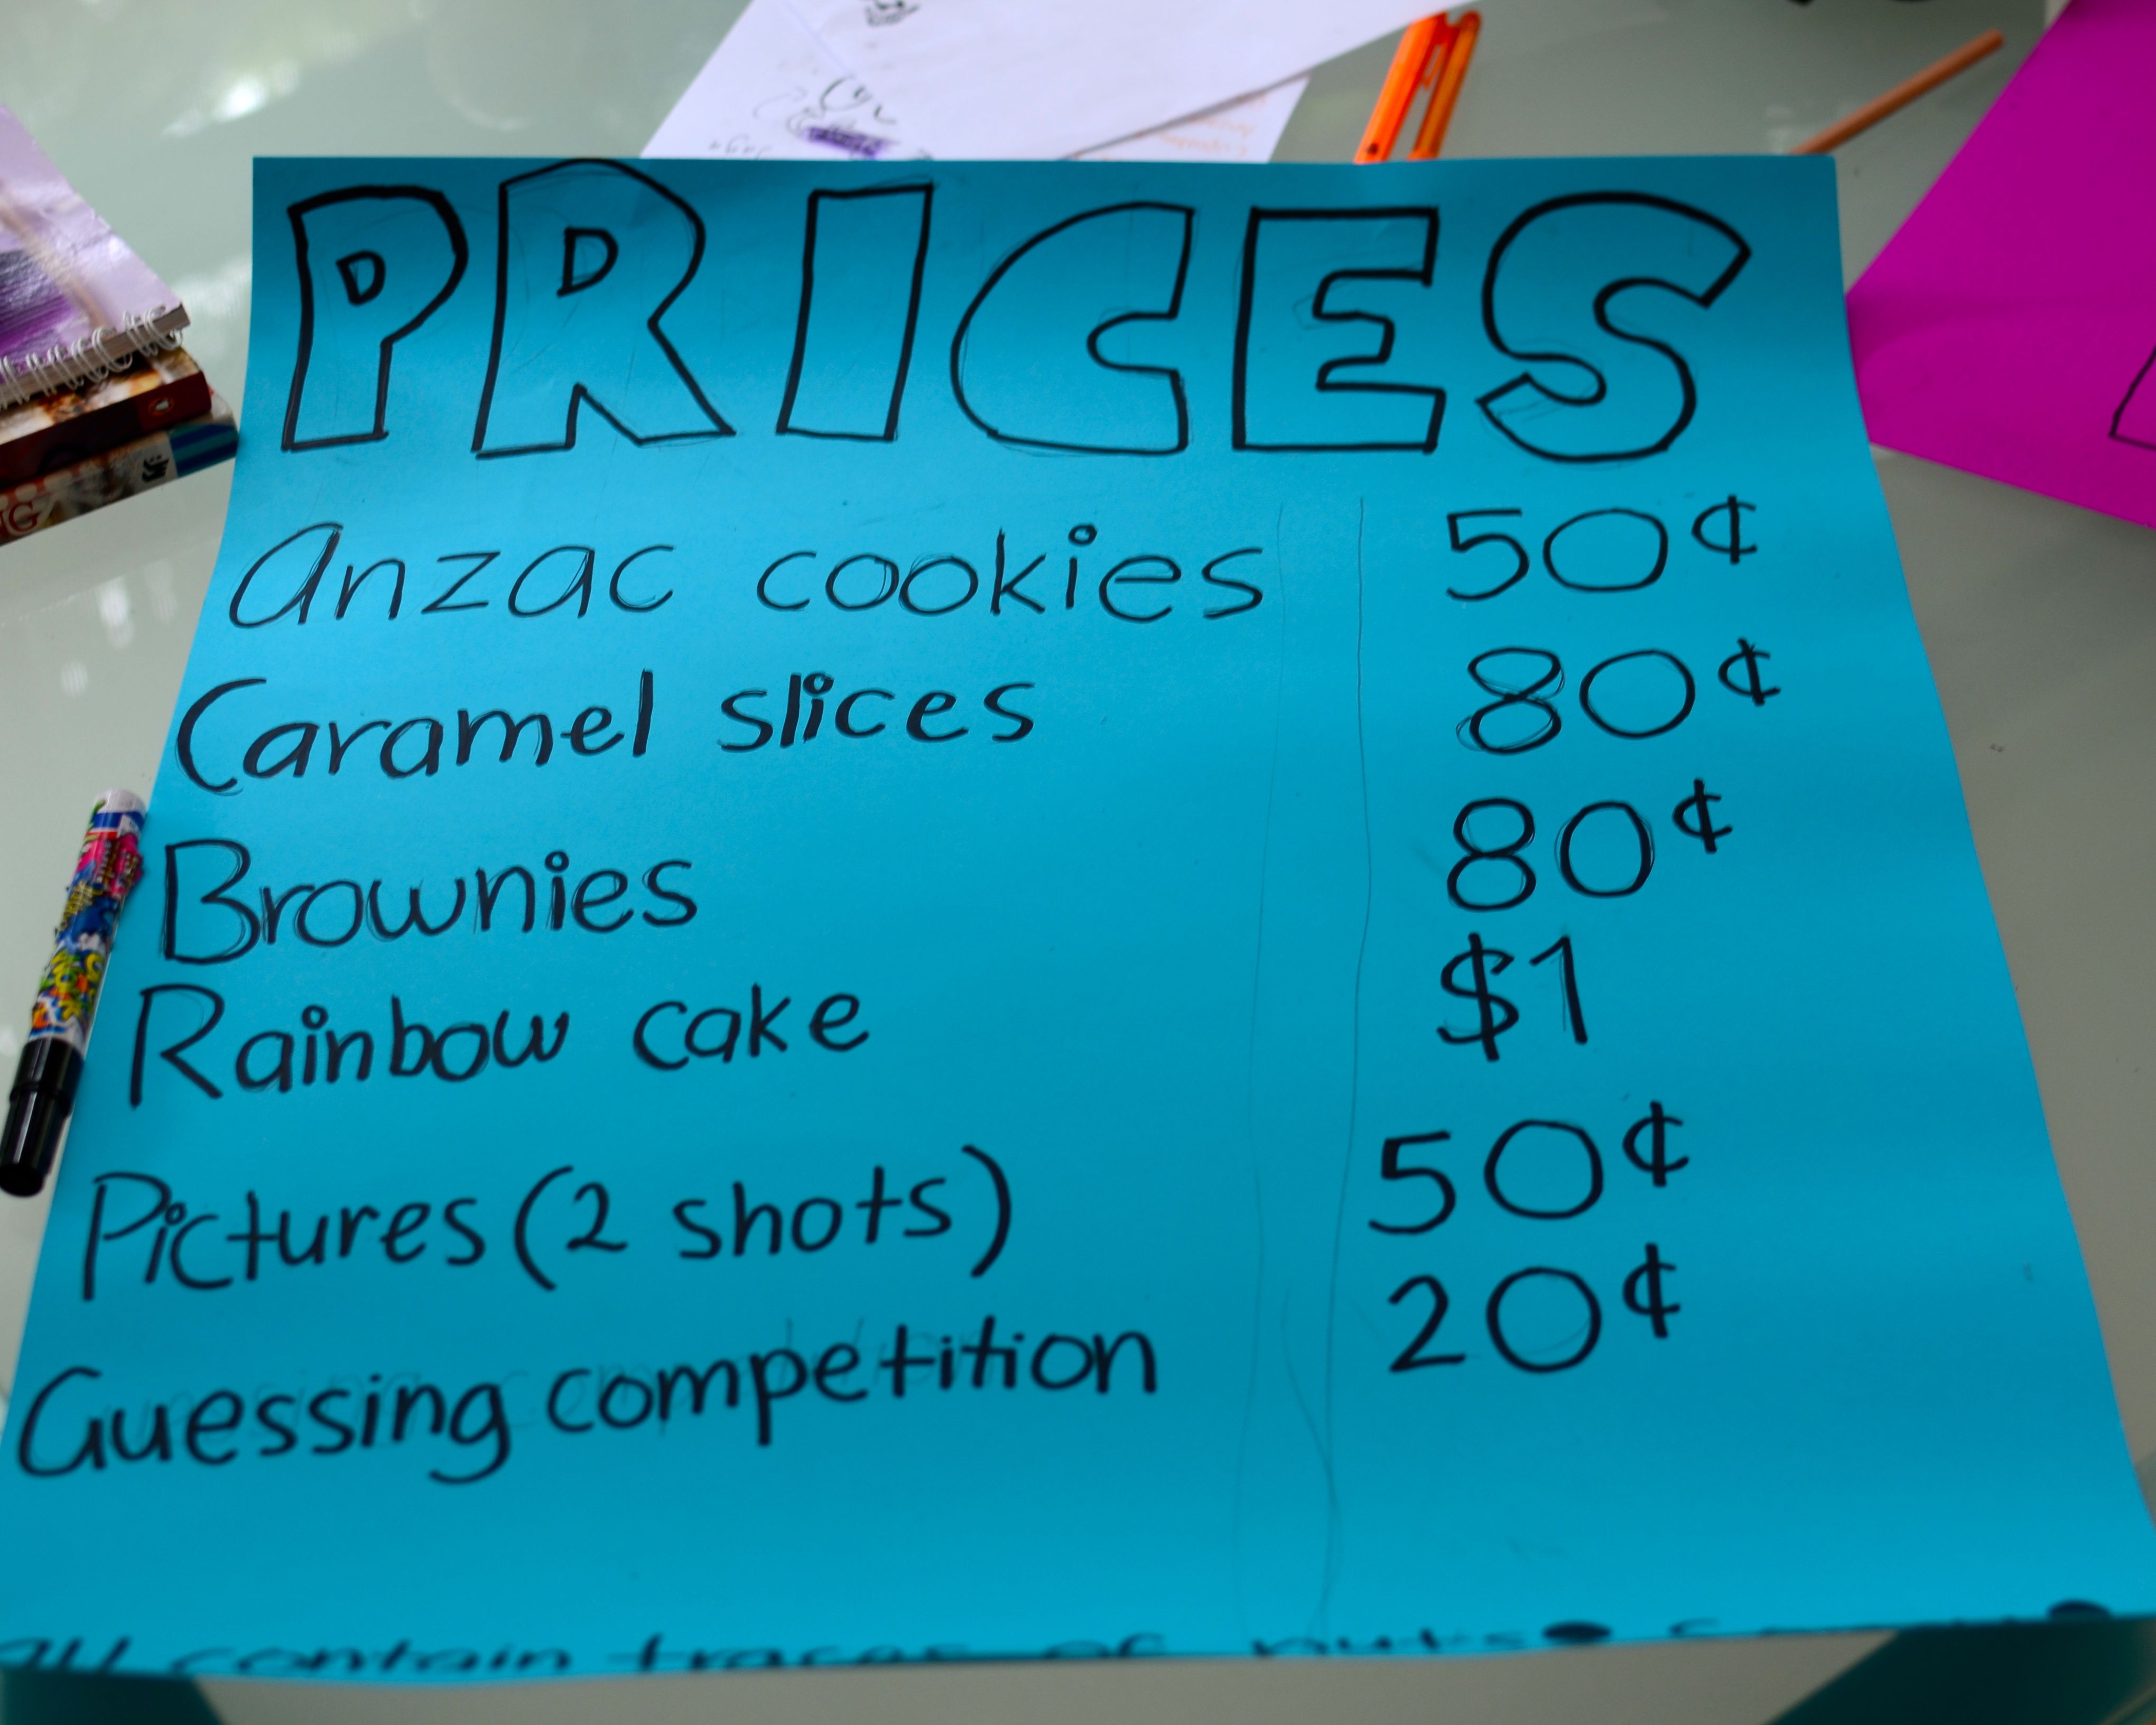 PRICES
Anzac cookies 50¢
Caramel slices 80¢
Brownies 80¢
Rainbow cake $1
Pictures (2 shots) 50¢
Guessing competition 20¢
contain traces of nuts